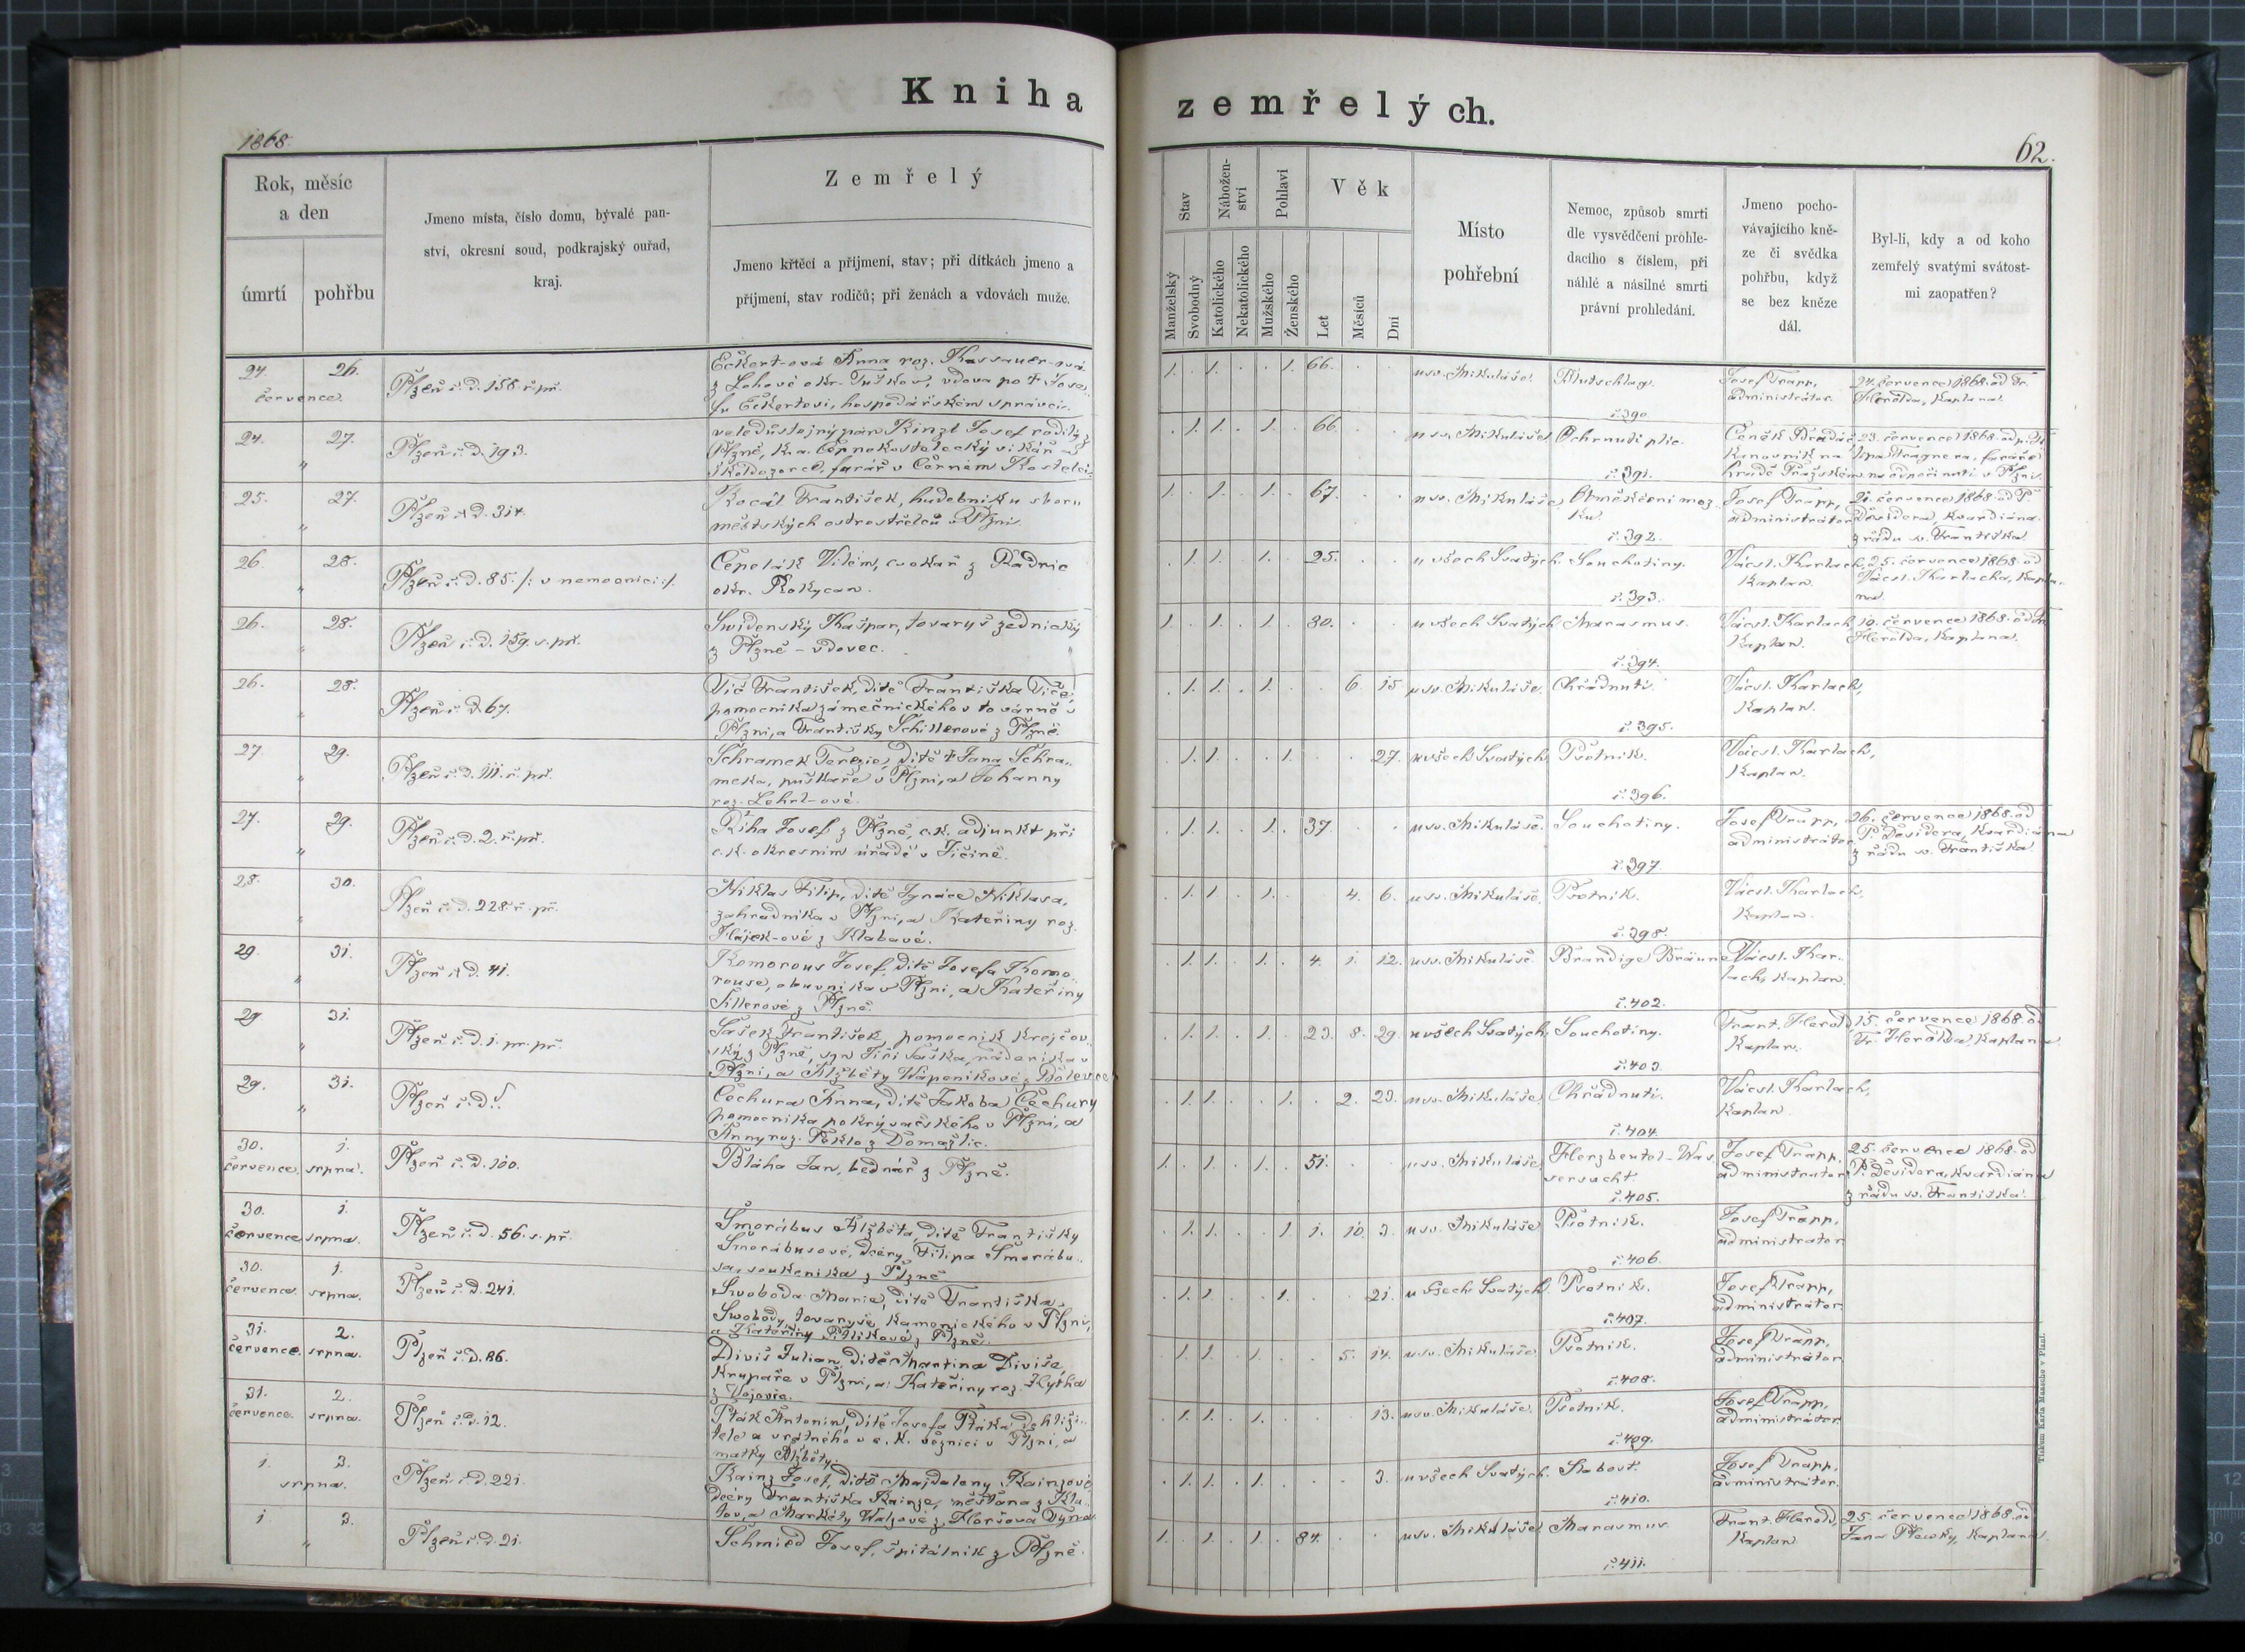 Kniha
zemřelých.
1868.
62.
Rok, měsíc
a den
úmrtí
pohřbu
Jmeno místa, číslo domu, bývalé pan-
ství, okresní soud, podkrajský ouřad,
kraj.
Zemřelý
Jmeno křtěcí a příjmení, stav; při dítkách jmeno a
příjmení, stav rodičů; při ženách a vdovách muže.
Stav
Manželský
Svobodný
Nábožen-
ství
Katolického
Nekatolického
Pohlaví
Mužského
Ženského
Věk
Let
Měsíců
Dní
Místo
pohřební
Nemoc, způsob smrti
dle vysvědčení prohle-
dacího s číslem, při
náhlé a násilné smrti
právní prohledání.
Jmeno pocho-
vávajícího kně-
ze či svědka
pohřbu, když
se bez kněze
dál.
Byl-li, kdy a od koho
zemřelý svatými svátost-
mi zaopatřen?
24. 26.
července.
Plzeň č. d. 158. ř. př.
Eckert-ová Anna roz.
z Lohové okr. Tuškov, vdova po † Jose-
fu Eckertovi, hospodářském správci.
1. . 1. . . 1. 66. . .
u sv. Mikuláše.
Blutschlag.
č. 390.
Josef Trapp,
administrátor.
24. července 1868. od Fr.
Herolda, kaplana.
24. 27.
"
Plzeň č. d. 193.
veledůstojný pán Kinzl Josef rodilý z
Plzně, k. a. černokostelecký vikář a
školdozorce, farář v Černém Kostelci.
. 1. 1. . 1. . 66. . .
u sv. Mikuláše.
Ochrnutí plic.
č. 391.
Čeněk Bradáč
kanovník na
hradě Pražském
23. července 1868. od p.
Wagnera, faráře
na odpočinutí v Plzni.
25. 27.
"
Plzeň č. d. 314.
Kocál František, hudebník u sboru
městských ostrostřelců v Plzni.
1. . 1. . 1. . 67. . .
u sv. Mikuláše.
Obměkčení moz-
ku.
č. 392.
Josef Trapp,
administrátor
21. července 1868. od P.
Desidera, kvardiána
z řádu sv. Františka.
26. 28.
"
Plzeň č. d. 85. /: v nemocnici :/.
Čepelák Vilém, cvokař z Radnic
okr. Rokycan.
. 1. 1. . 1. . 25. . .
u všech Svatých.
Souchotiny.
č. 393.
Václ. Karlach,
kaplan.
25. července 1868. od
Václ. Karlacha, kapla-
na.
26. 28.
"
Plzeň č. d. 159. s. př.
Swidenský Kašpar, tovaryš zednický
z Plzně – vdovec.
1. . 1. . 1. . 80. . .
u všech Svatých
Marasmus.
č. 394.
Václ. Karlach,
kaplan.
19. července 1868. od Fr.
Herolda, kaplana.
26. 28.
"
Plzeň č. d. 67.
Vič František, dítě Františka Viče,
pomocníka zámečnického v továrně v
Plzni, a Františky Schillerové z Plzně.
. 1. 1. . 1. . . 6. 15.
u sv. Mikuláše.
Chřadnutí.
č. 395.
Václ. Karlach,
kaplan.
27. 29.
"
Plzeň č. d. 111. ř. př.
Schramek Terezie, dítě † Jana Schra-
meka, puškaře v Plzni, a Johanny
roz. Lehrl-ové.
. 1. 1. . . 1. . . 27.
u všech Svatých
Psotník.
č. 396.
Václ. Karlach,
kaplan.
27. 29.
"
Plzeň č. d. 2. ř. př.
Říha Josef z Plzně, c. k. adjunkt při
c. k. okresním úřadě v Jičíně.
. 1. 1. . 1. . 37. . .
u sv. Mikuláše.
Souchotiny.
č. 397.
Josef Trapp,
administrátor.
26. července 1868. od
P. Desidera, kvardiána
z řádu sv. Františka.
28. 30.
"
Plzeň č. d. 228. ř. př.
Niklas Filip, dítě Ignáce Niklasa,
zahradníka v Plzni, a Kateřiny roz.
Hájek-ové z Klabavé.
. 1. 1. . 1. . . 4. 6.
u sv. Mikuláše.
Psotník.
č. 398.
Václ. Karlach,
kaplan.
29. 31.
"
Plzeň č. d. 41.
Komorous Josef, dítě Josefa Komo-
rouse, obuvníka v Plzni, a Kateřiny
Sillerové z Plzně.
. 1. 1. . 1. . 4. 1. 12.
u sv. Mikuláše.
Brandige Bräune
č. 402.
Václ. Kar-
lach, kaplan.
29 31.
"
Plzeň č. d. 1. pr. př.
Sašek František, pomocník krejčov-
ský z Plzně, syn Jiří Saška, nádeníka v
Plzni, a Alžběty Wápeníkové z Bolevce
. 1. 1. . 1. . 23. 8. 29.
u všech Svatých.
Souchotiny.
č. 403.
Frant. Herold
kaplan.
15. července 1868. od
Fr. Herolda, kaplana.
29. 31.
"
Plzeň č. d.
Čechura Anna, dítě Jakoba Čechury
pomocníka pokrývačského v Plzni, a
Anny roz. Foklo z Domažlic.
. 1. 1. . . 1. . 2. 23.
u sv. Mikuláše.
Chřadnutí.
č. 404.
Václ. Karlach,
kaplan.
30. 1.
července. srpna.
Plzeň č. d. 100.
Bláha Jan, bednář z Plzně.
1. . 1. . 1. . 51. . .
u sv. Mikuláše.
Herzbeutel-Was-
sersucht.
č. 405.
Josef Trapp,
administrator
25. července 1868. od
P. Desidera, kvardiána
z řádu sv. Františka.
30. 1.
července srpna.
Plzeň č. d. 56. s. př.
Smorábus Alžběta, dítě Františky
Smorábusové, dcery Filipa Smorábu-
sa, soukeníka z Plzně
. 1. 1. . . 1. 1. 10. 3.
u sv. Mikuláše
Psotník.
č. 406.
Josef Trapp,
administrator
30. 1.
července. srpna.
Plzeň č. d. 241.
Swoboda Marie, dítě Františka
Swobody, tovaryše kamenického v Plzni,
a Kateřiny z Plzně.
. 1. 1. . . 1. . . 21.
u všech Svatých
Psotník.
č. 407.
Josef Trapp,
administrátor.
31. 2.
července. srpna.
Plzeň č. d. 86.
Diviš Julian, dítě Martina Diviše,
krupaře v Plzni, a Kateřiny roz. Hytha
z Vojovic.
. 1. 1. . 1. . . 5. 14.
u sv. Mikuláše
Psotník.
č. 408.
Josef Trapp,
administrátor
31. 2.
července. srpna.
Plzeň č. d. 12.
Pták Antonín, dítě Josefa Ptáka, dohliži-
tele a vrátného v c. k. věznici v Plzni, a
matky Alžběty.
. 1. 1. . 1. . . . 13.
u sv. Mikuláše.
Psotník.
č. 409.
Josef Trapp,
administrátor
1. 3.
srpna.
Plzeň č. d. 221.
Kainz Josef, dítě Majdaleny Kainzové,
dcery Františka Kainze, měšťana z Kla-
tov, a Markéty Walzové z Horšova Týna.
. 1. 1. . 1. . . . 3.
u všech Svatých.
Slabost.
č. 410.
Josef Trapp,
administrátor.
1 3.
"
Plzeň č. d. 21.
Schmied Josef, špitálník z Plzně.
1. . 1. . 1. . 84. . .
u sv. Mikuláše
Marasmus
č. 411.
Frant. Herold,
kaplan
25. července 1868. od
Jana Plewky, kaplana.
Tiskem Karla Maascha v Plzni.